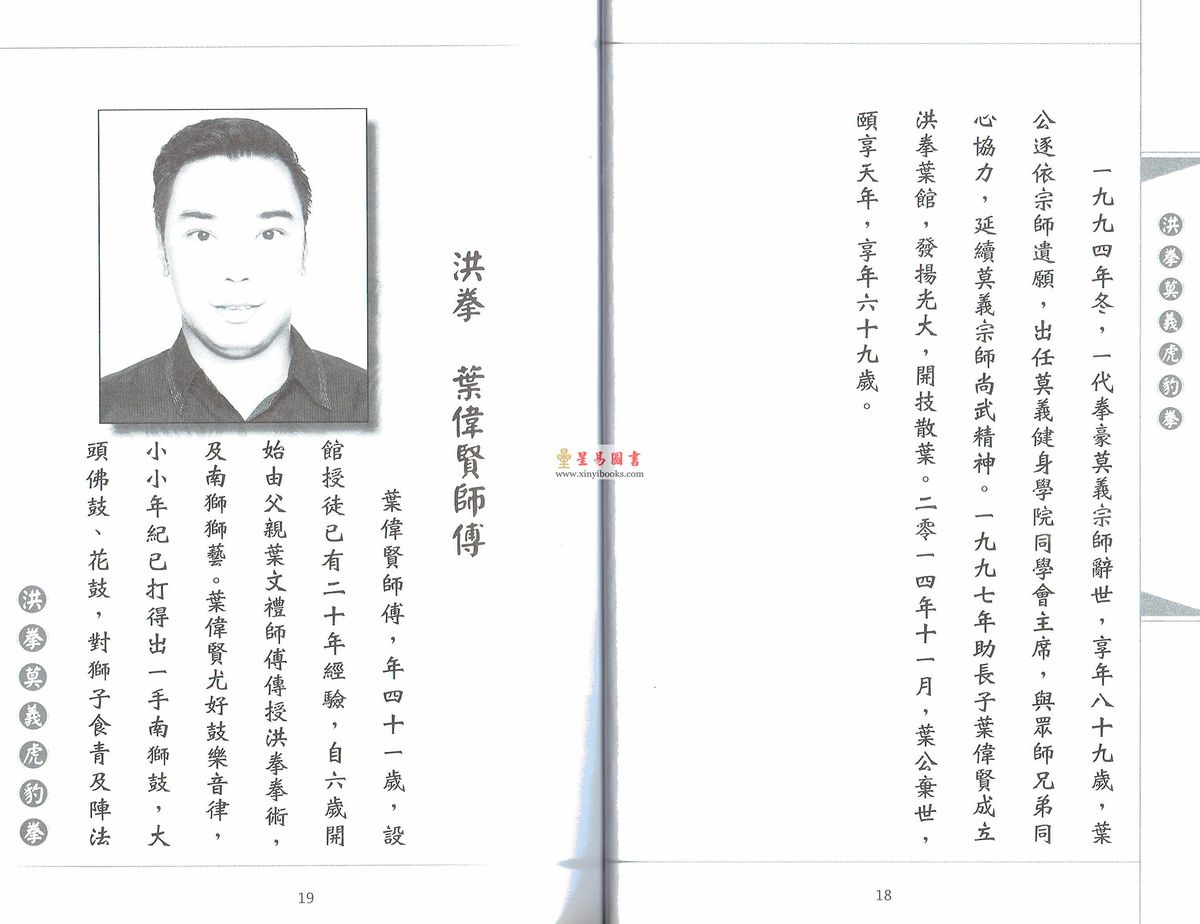 洪拳莫義虎豹拳
一九九四年冬，一代拳豪莫義宗師辭世，享年八十九歲，葉
公逐依宗師遺願，出任莫義健身學院同學會主席，與眾師兄弟同
心協力，延續莫義宗師尚武精神。一九九七年助長子葉偉賢成立
洪拳葉館，發揚光大，開技散葉。二零一四年十一月，葉公棄世，
頤享天年，享年六十九歲。
18
星易圖書
www.xinyibooks.com
洪拳　葉偉賢師傅
葉偉賢師傅，年四十一歲，設
館授徒已有二十年經驗，自六歲開
始由父親葉文禮師傅傳授洪拳拳術，
及南獅獅藝。葉偉賢尤好鼓樂音律，
小小年紀已打得出一手南獅鼓，大
頭佛鼓、花鼓，對獅子食青及陣法
洪拳莫義虎豹拳
19